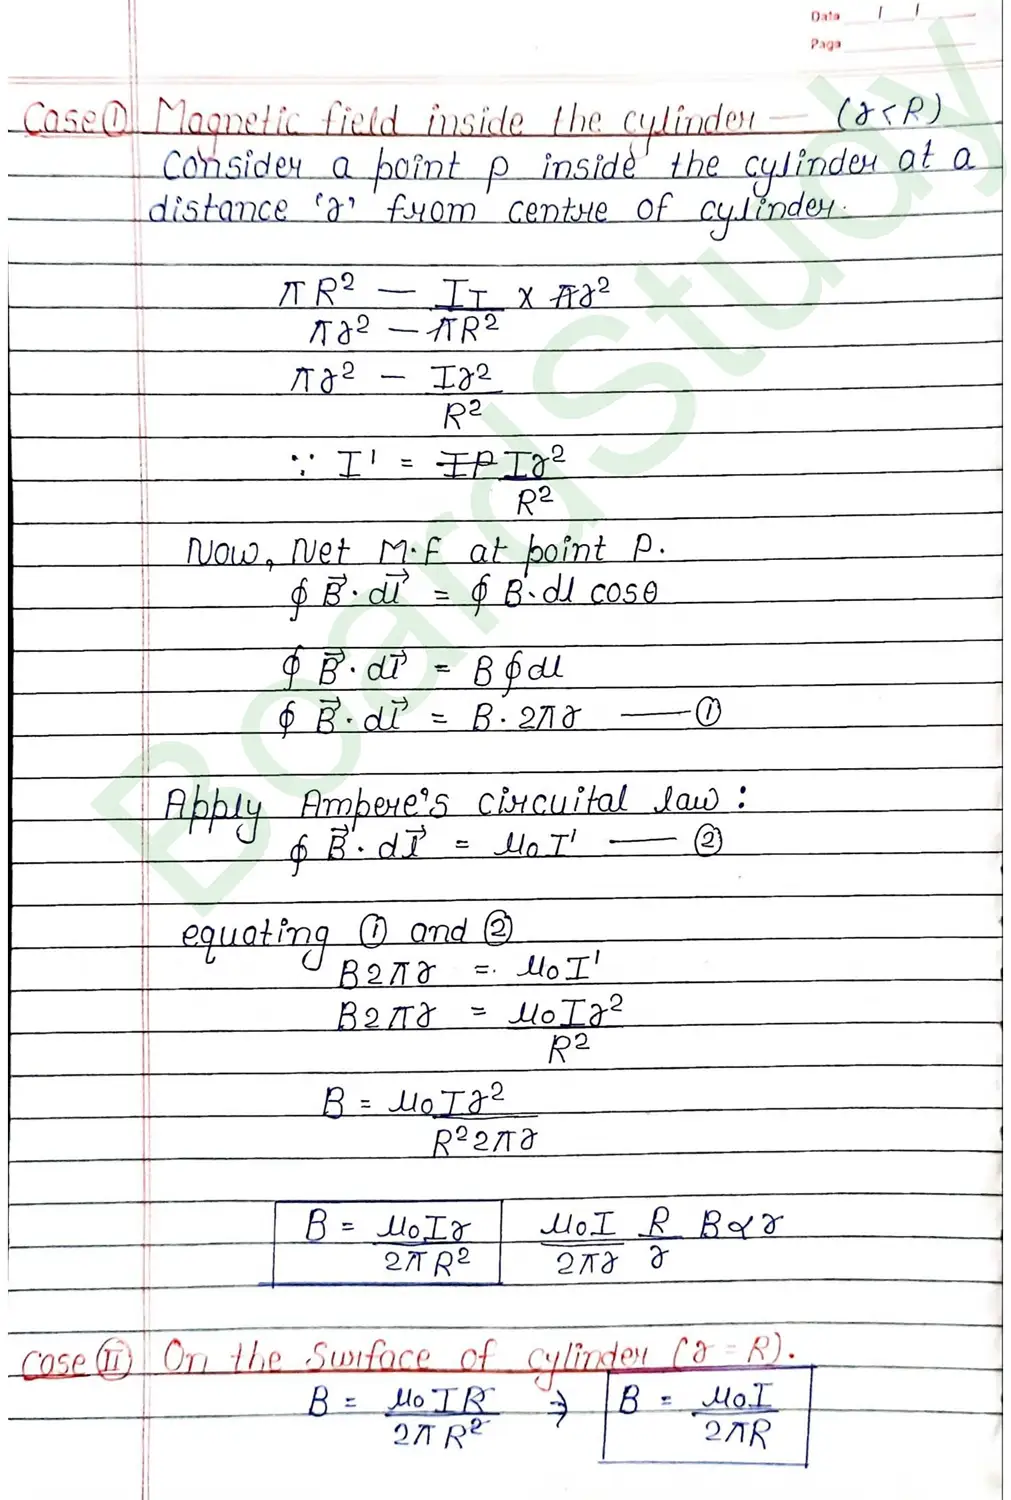 Date / /
Page
Case ① Magnetic field inside the cylinder — (r < R)
Consider a point P inside the cylinder at a
distance 'r' from centre of cylinder.
πR² — I_T/πR² × πr²
πr² —
πr² — Ir²/R²
∵ I' = IP Ir²/R²
Now, Net M.F at point P.
∮ B⃗·dl⃗ = ∮ B·dl cosθ
∮ B⃗·dl⃗ = B∮dl
∮ B⃗·dl⃗ = B·2πr —— ①
Apply Ampere's circuital law :
∮ B⃗·dl⃗ = μ₀I' —— ②
equating ① and ②
B2πr = μ₀I'
B2πr = μ₀Ir²/R²
B = μ₀Ir²/R²2πr
B = μ₀Ir/2πR² μ₀I/2πr R/r B∝r
Case ⓘⓘ On the Surface of cylinder (r = R).
B = μ₀IR/2πR² ⇒ B = μ₀I/2πR
BoardStudy